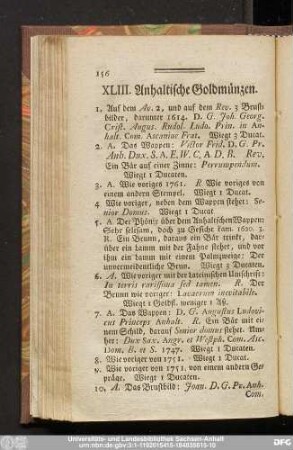 156
XLIII. Anhaltische Goldmünzen.
1. Auf dem Av. 2, und auf dem Rev. 3 Brust-
bilder, darunter 1614. D. G. Joh. Georg.
Crist. Augus. Rudol. Ludo. Prin. in An-
halt. Com. Ascaniae Frat. Wiegt 3 Ducat.
2. A. Das Wappen: Victor Frid. D. G. Pr.
Anh. Dux. S. A. E. W. C. A. D. B. Rev.
Ein Bär auf einer Zinne: Perrumpendum.
Wiegt 1 Ducaten.
3. A. Wie voriges 1761. R. Wie voriges von
einem andern Stempel. Wiegt 1 Ducat.
4. Wie voriger, neben dem Wappen stehet: Se-
nior Domus. Wiegt 1 Ducat.
5. A. Der Phönix über dem Anhaltischen Wappen:
Sehr selesam, doch zu Gesicht kam. 1620. 3.
R. Ein Brunn, daraus ein Bär trinkt, dar-
über ein Lamm mit der Fahne stehet, und vor
ihm ein Lamm mit einem Palmzweige: Der
unvermeidentliche Brun. Wiegt 3 Ducaten.
6. A. Wie voriger mit der lateinischen Umschrift:
In terris rarissima sed tamen. R. Der
Brunn wie voriger: Lavacrum inevitabile.
Wiegt 1 Goldfl. weniger 1 Aß.
7. A. Das Wappen: D. G. Augustus Ludovi-
cus Princeps Anhalt. R. Ein Bär mit ei-
nem Schild, darauf Senior domus stehet. Um-
her: Dux Sax. Angr. et Westph. Com. Asc.
Dom. B. et S. 1747. Wiegt 1 Ducaten.
8. Wie voriger von 1751. Wiegt 1 Ducat.
9. Wie voriger von 1751. von einem andern Ge-
präge. Wiegt 1 Ducaten.
10. A. Das Brustbild: Joan. D. G. Pr. Anh.
Com.
Universitäts- und Landesbibliothek Sachsen-Anhalt
DFG